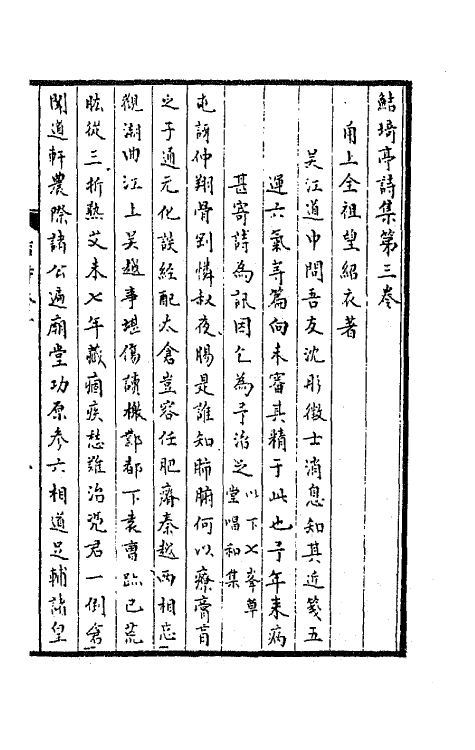 鮚埼亭詩集第三卷
甬上全祖望紹衣著
吳江道中問吾友沈彤徵士消息知其近箋五
運六氣等篇向未審其精于此也予年來病
甚寄詩為訊因乞為予治之以下七峯草
堂唱和集
屯訝仲翔骨剛憐叔夜腸是誰知肺腑何以療膏肓
之子通元化談經配太倉豈容任肥瘠秦越兩相忘
觀濤曲江上吳越事堪傷讀檄鄴都下袁曹跡已荒
肱從三折熟艾未七年藏痼疾愁難治凭君一倒倉
聞道軒農際諸公遍廟堂功原參六相道足輔諸皇